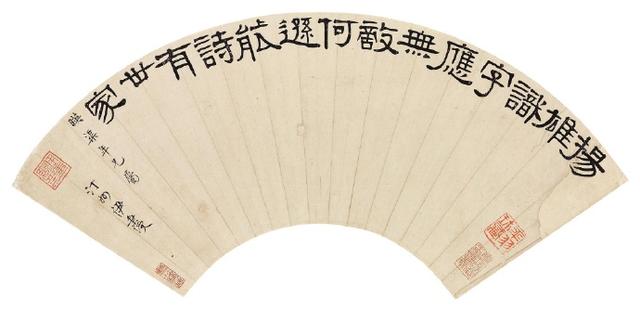 揚雄識字應無敵何遜能詩有世家
暎渠年兄屬
汀州伊秉綬